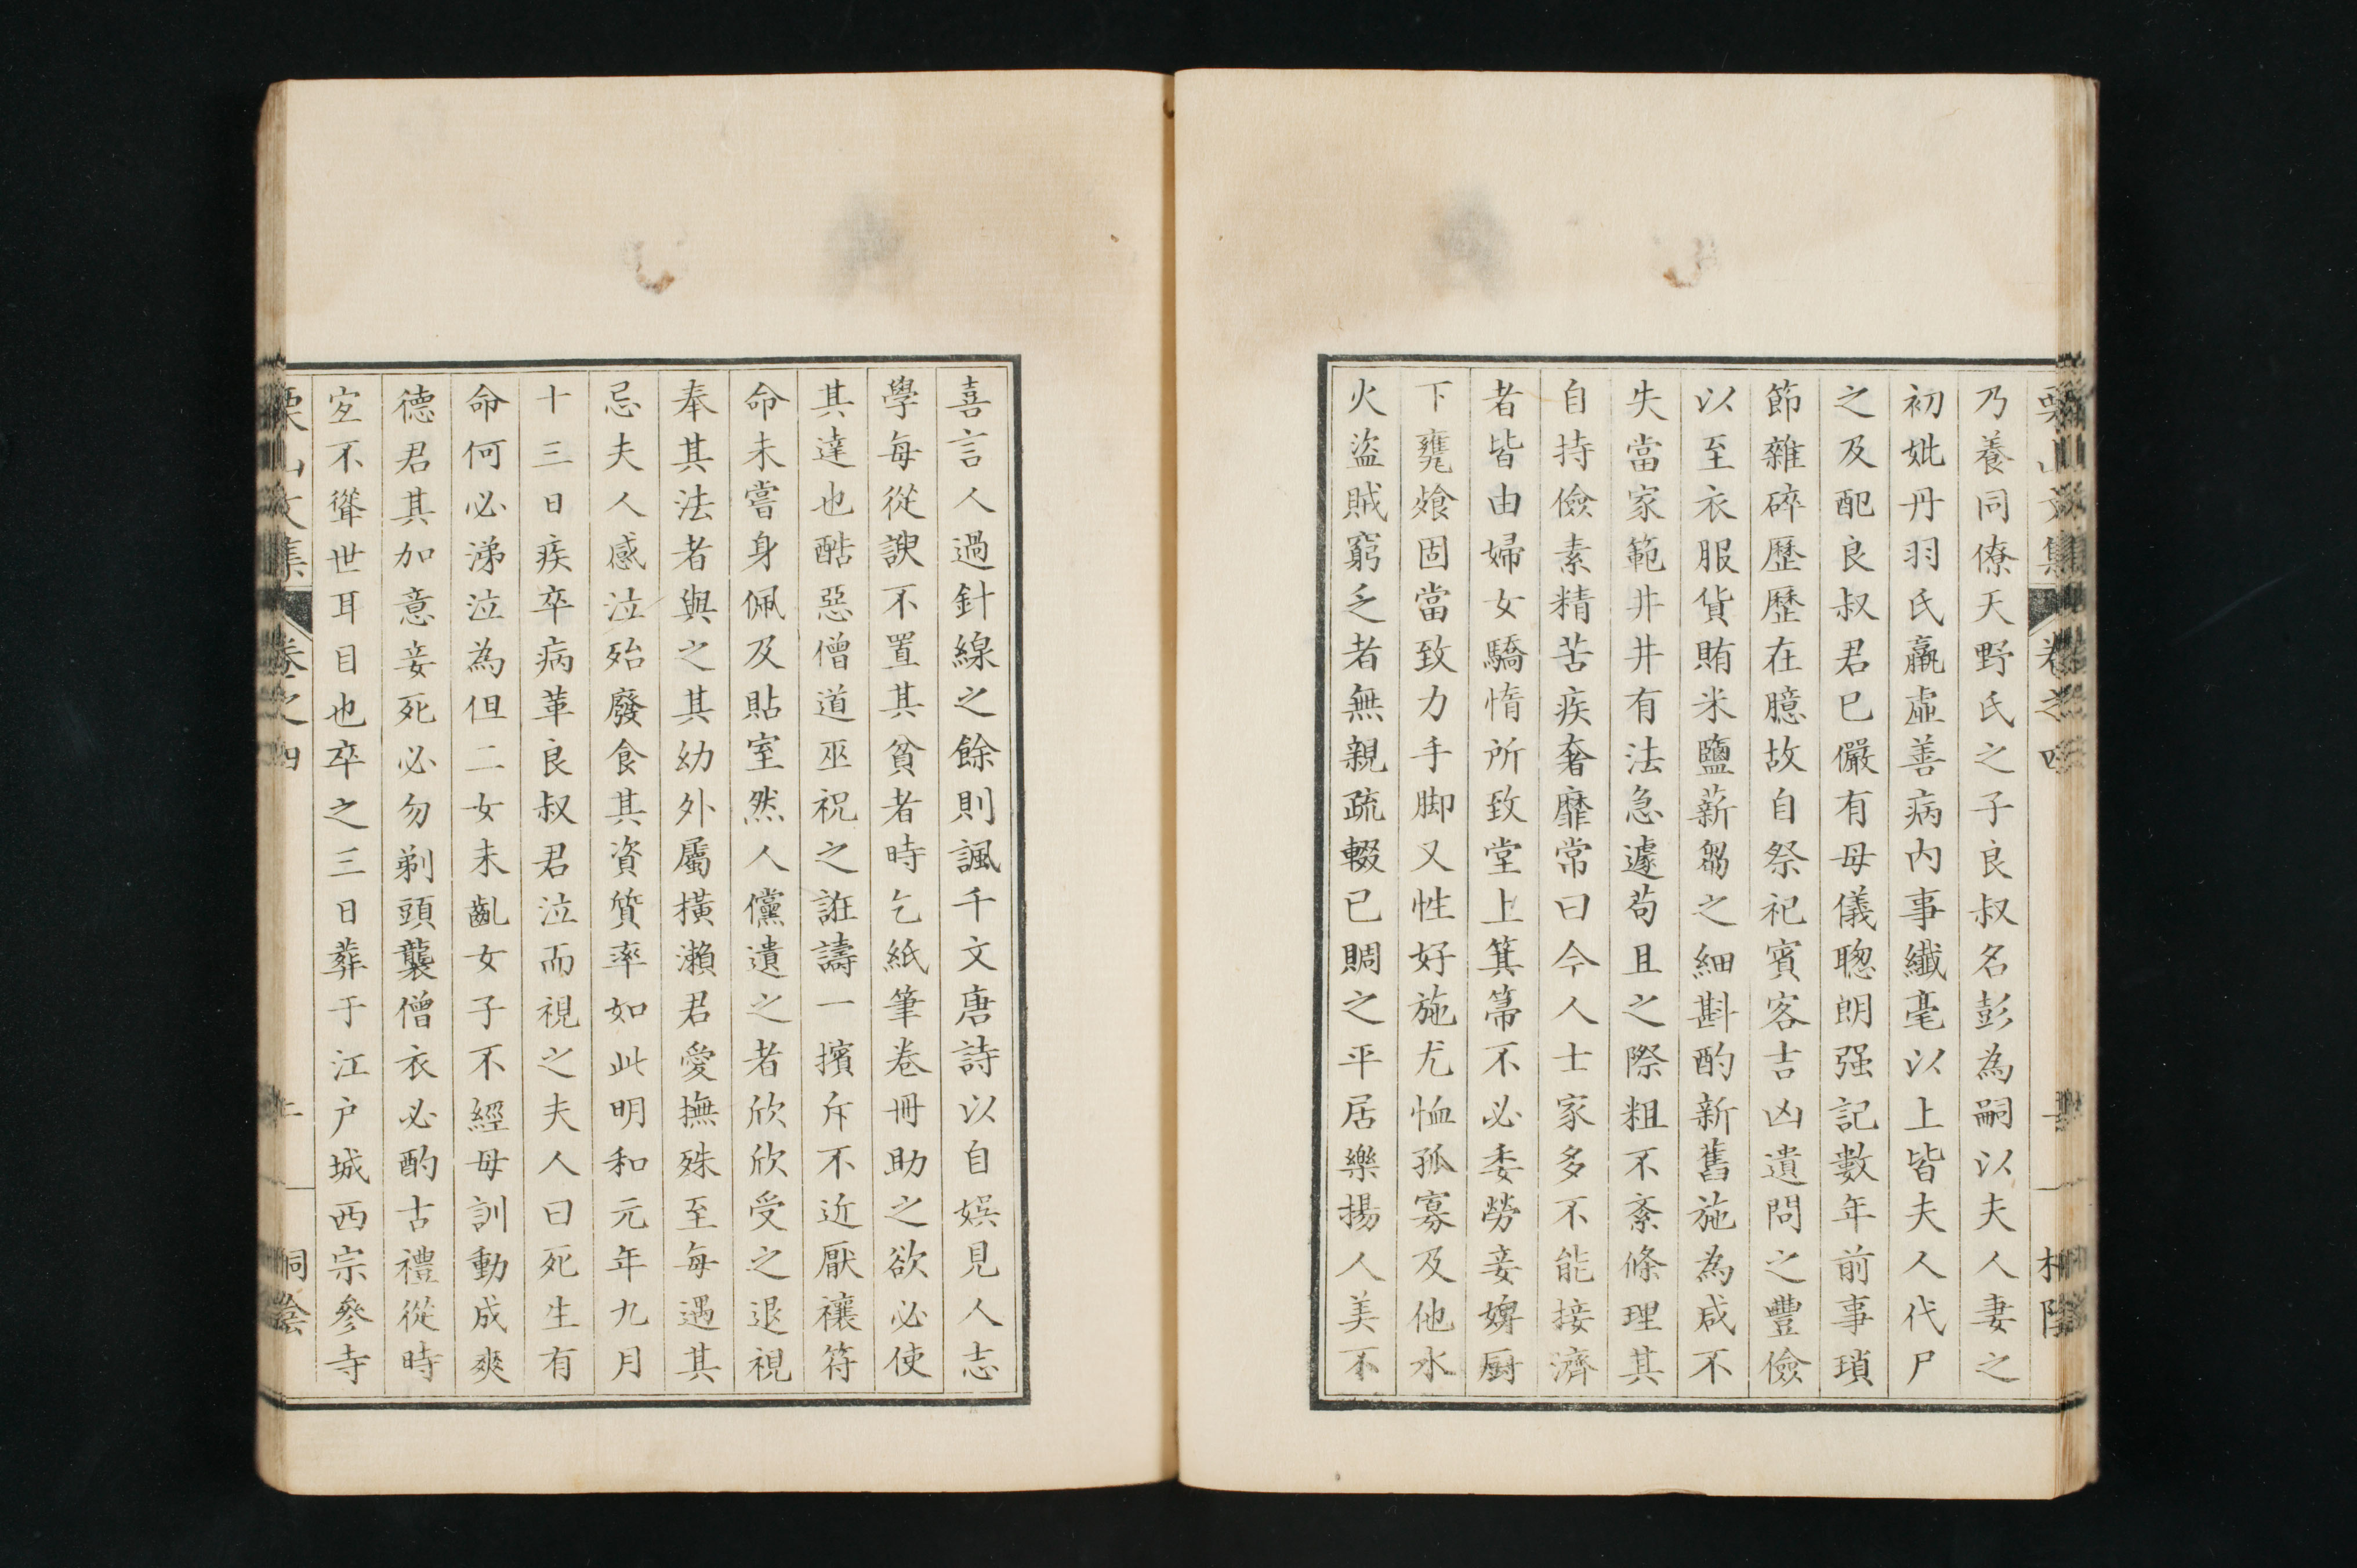 栗山文集 卷之四 桐陰
乃養同僚天野氏之子良叔名彭為嗣以夫人妻之
初妣丹羽氏羸虛善病内事纖毫以上皆夫人代尸
之及配良叔君已儼有母儀聰朗强記數年前事瑣
節雜碎歷歷在臆故自祭祀賓客吉凶遺問之豐儉
以至衣服貨賄米鹽薪芻之細斟酌新舊施為咸不
失當家範井井有法急遽苟且之際粗不紊條理其
自持儉素精苦疾奢靡常曰今人士家多不能接濟
者皆由婦女驕惰所致堂上箕箒不必委勞妾婢厨
下甕飧固當致力手脚又性好施尤恤孤寡及他水
火盜賊窮乏者無親疏輟已賙之平居樂揚人美不
喜言人過針線之餘則諷千文唐詩以自娯見人志
學每從諛不置其貧者時乞紙筆卷冊助之欲必使
其達也酷惡僧道巫祝之誑譸一擯斥不近厭禳符
命未嘗身佩及貼室然人儻遺之者欣欣受之退視
奉其法者與之其幼外屬橫瀨君愛撫殊至每遇其
忌夫人感泣殆廢食其資質率如此明和元年九月
十三日疾卒病革良叔君泣而視之夫人曰死生有
命何必涕泣為但二女未齓女子不經母訓動成爽
德君其加意妾死必勿剃頭襲僧衣必酌古禮從時
宐不聳世耳目也卒之三日葬于江户城西宗參寺
栗山文集 卷之四 桐陰